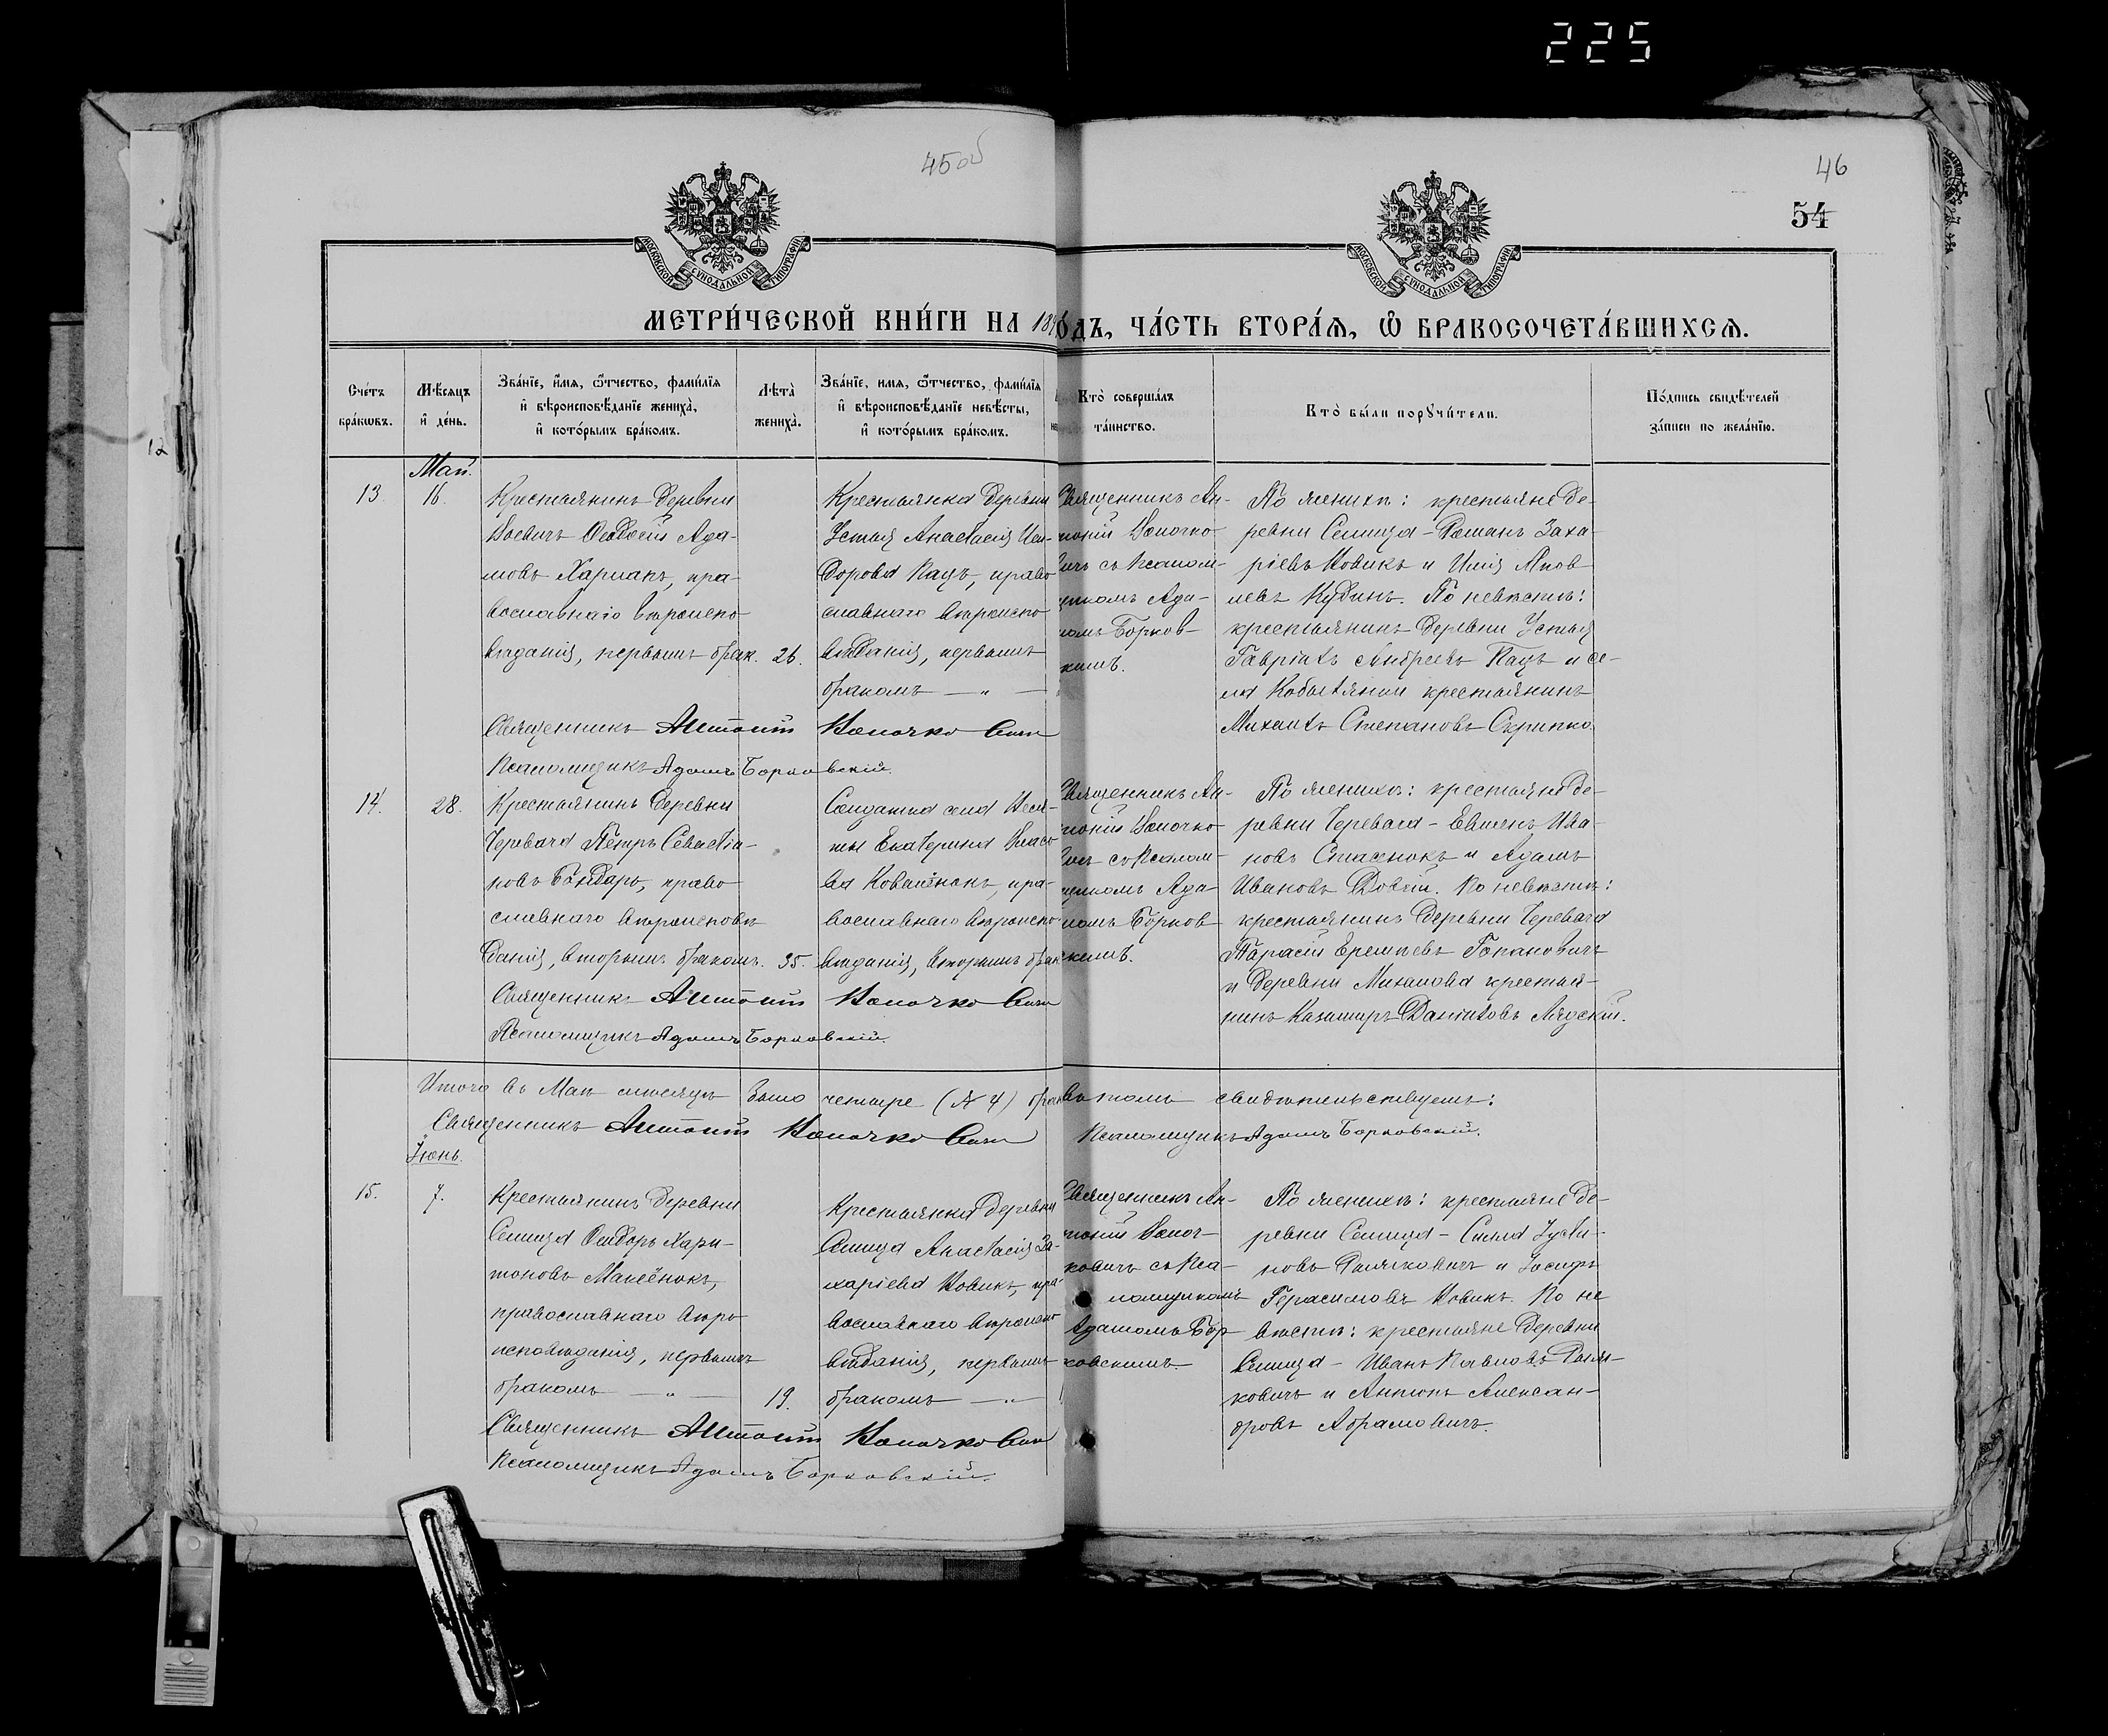 225
45об
46
54
МОСКОВСКОЙ СѴНОДАЛЬНОЙ ТИПОГРАФІИ
МОСКОВСКОЙ СѴНОДАЛЬНОЙ ТИПОГРАФІИ
МЕТРИ́ЧЕСКОЙ КНИ́ГИ НА 189
О́ДЪ, ЧА́СТЬ ВТОРА́Ѧ, Ѿ БРАКОСОЧЕТА́ВШИХСѦ.
Сче́тъ бра́кѡвъ.
Мѣ́сѧцъ и҆ де́нь.
Зва́нїе, и҆́мѧ, ѻ҆́тчество, фами́лїѧ
и҆ вѣроисповѣ́данїе жениха̀,
и҆ кото́рымъ бра́комъ.
Лѣта̀ жениха̀.
Зва́нїе, имѧ, ѻ҆́тчество, фами́лїѧ
и҆ вѣроисповѣ́данїе невѣ́сты,
и҆ кото́рымъ бра́комъ.
Кто̀ соверша́лъ
та́инство.
Кто̀ бы́ли порꙋчи́тели.
По́дпись свидѣ́телей
за́писи по жела́нїю.
12
Май.
13.
16.
Крестьянинъ деревни
Ѳеодосій Ада-
мовъ Харланъ, пра-
вославнаго вѣроиспо-
вѣданія, первымъ брак.
26.
Крестьянка деревни
Устья Анастасія Иси-
дорова Кацъ, право
славнаго вѣроиспо
вѣданія, первымъ
бракомъ — „ —
Священникъ Ан-
тоній Коночко
вичъ съ псалом-
щикомъ Ада-
момъ Борков-
скимъ.
По женихѣ: крестьяне де-
ревни Селища - Романъ Заха-
ріевъ Новикъ и Илія Яков
левъ Кудинъ. По невѣстѣ:
крестьянинъ деревни Устья
Гавріилъ Андреевъ Кацъ и се-
ла Кобылянки крестьянинъ
Михаилъ Степановъ Скрипко.
Священникъ Антоній Коночкович
Псаломщикъ Адамъ Борковскій.
14.
28.
Крестьянинъ деревни
Черевача Петръ Севастіа-
новъ Бондарь, право
славнаго вѣроисповѣ
данія, вторымъ бракомъ.
35.
Солдатка села
Екатерина Власо
ва Ковалёнокъ, пра-
вославнаго вѣроиспо
вѣданія, вторымъ брак
Священникъ Ан-
тоній Коночко
вичъ съ псалом-
щикомъ Ада-
момъ Борков
скимъ.
По женихѣ: крестьяне де-
ревни Черевача - Евменъ Ива-
новъ Стасенокъ и Адамъ
Ивановъ Довгій. По невѣстѣ:
крестьянинъ деревни Черевача
Тарасій Еремѣевъ Гопановичъ
и деревни Михалова крестья-
нинъ Казимиръ Даниловъ Лядскій.
Священникъ Антоній Коночкович
Псаломщикъ Адамъ Борковскій.
Итого въ Маѣ мѣсяцѣ было четыре (№ 4) брак
въ томъ свидѣтельствуемъ:
Священникъ Антоній Коночкович
Псаломщикъ Адамъ Борковскій.
Іюнь.
15.
7.
Крестьянинъ деревни
Селища Ѳедоръ Хари-
тоновъ Макеёнокъ,
православнаго вѣро
исповѣданія, первымъ
бракомъ — „ —
19.
Крестьянка деревни
Селища Анастасія За-
харіева Новикъ, пра-
вославнаго вѣроиспо
вѣданія, первымъ
бракомъ — „ —
Священникъ Ан-
тоній Коноч-
ковичъ съ пса-
ломщикомъ
Адамомъ Бор
ковскимъ.
По женихѣ: крестьяне де-
ревни Селища - Сила Іусти-
новъ и Іосифъ
Герасимовъ Новикъ. По не
вѣстѣ: крестьяне деревни
Селища - Иванъ Павловъ
ковичъ и Антонъ Алексан-
дровъ Абрамовичъ.
Священникъ Антоній Коночкович
Псаломщикъ Адамъ Борковскій.